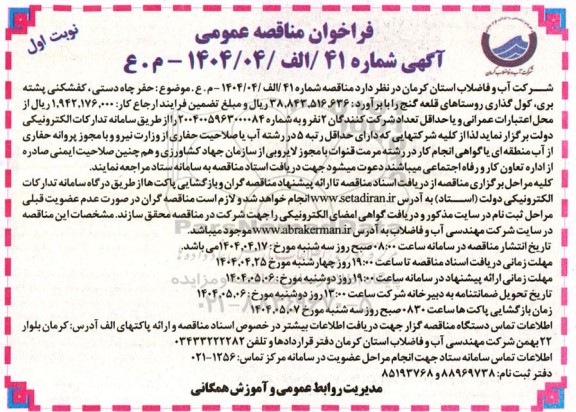 نوبت اول
فراخوان مناقصه عمومی
آگهی شماره ۴۱/الف/۱۴۰۴/۰۴ - م.ع
شرکت آب و فاضلاب استان کرمان
شرکت آب و فاضلاب استان کرمان در نظر دارد مناقصه شماره ۴۱/الف/۱۴۰۴/۰۴ - م.ع. موضوع: حفر چاه دستی، کفشکنی پشته
بری، کول گذاری روستاهای قلعه گنج را با برآورد: ۳۸,۸۴۳,۵۱۶,۶۳۶ ریال و مبلغ تضمین فرایند ارجاع کار: ۱,۹۴۲,۱۷۶,۰۰۰ ریال از
محل اعتبارات عمرانی و با حداقل تعداد شرکت کنندگان ۲نفر و به شماره ۲۰۰۴۰۰۵۹۶۳۰۰۰۰۸۴ را از طریق سامانه تدارکات الکترونیکی
دولت برگزار نماید لذا از کلیه شرکتهایی که دارای حداقل رتبه ۵ در رشته آب یا صلاحیت حفاری از وزارت نیرو و یا مجوز پروانه حفاری
از آب منطقه ای یا گواهی انجام کار در رشته مرمت قنوات یا مجوز لایروبی از سازمان جهاد کشاورزی و هم چنین صلاحیت ایمنی صادره
از اداره تعاون کار و رفاه اجتماعی میباشند دعوت میشود جهت دریافت اسناد مناقصه به سامانه ستاد مراجعه نمایند.
کلیه مراحل برگزاری مناقصه از دریافت اسناد مناقصه تا ارائه پیشنهاد مناقصه گران و بازگشایی پاکت ها از طریق درگاه سامانه تدارکات
الکترونیکی دولت (ستاد) به آدرس www.setadiran.ir انجام خواهد شد و لازم است مناقصه گران در صورت عدم عضویت قبلی
مراحل ثبت نام در سایت مذکور و دریافت گواهی امضای الکترونیکی را جهت شرکت در مناقصه محقق سازند. مشخصات این مناقصه
در سایت شرکت مهندسی آب و فاضلاب به آدرس www.abrakerman.ir موجود میباشد.
تاریخ انتشار مناقصه در سامانه ساعت ۰۸:۰۰ صبح روز سه شنبه مورخ: ۱۴۰۴,۰۴,۱۷ می باشد.
مهلت زمانی دریافت اسناد مناقصه تا ساعت ۱۹:۰۰ روز چهارشنبه مورخ ۱۴۰۴,۰۴,۲۵
مهلت زمانی ارائه پیشنهاد در سامانه ساعت ۱۹:۰۰ روز دوشنبه مورخ: ۱۴۰۴,۰۵,۰۶
تاریخ تحویل ضمانتنامه به دبیرخانه شرکت ساعت ۱۳:۰۰ روز دوشنبه مورخ: ۱۴۰۴,۰۵,۰۶
زمان بازگشایی پاکت ها ساعت ۰۸:۳۰ صبح روز سه شنبه مورخ: ۱۴۰۴,۰۵,۰۷
اطلاعات تماس دستگاه مناقصه گزار جهت دریافت اطلاعات بیشتر در خصوص اسناد مناقصه و ارائه پاکتهای الف آدرس: کرمان بلوار
۲۲ بهمن شرکت مهندسی آب و فاضلاب استان کرمان دفتر قراردادها و تلفن ۰۳۴۳۳۲۲۲۲۸۲
اطلاعات تماس سامانه ستاد جهت انجام مراحل عضویت در سامانه مرکز تماس: ۱۴۵۶-۰۲۱
دفتر ثبت نام: ۸۸۹۶۹۷۳۸ و ۸۵۱۹۳۷۶۸
مدیریت روابط عمومی و آموزش همگانی